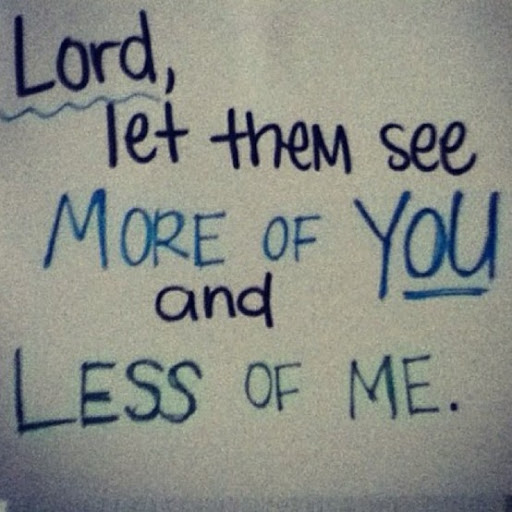 Lord,
let them see
MORE OF YOU
and
LESS OF ME.